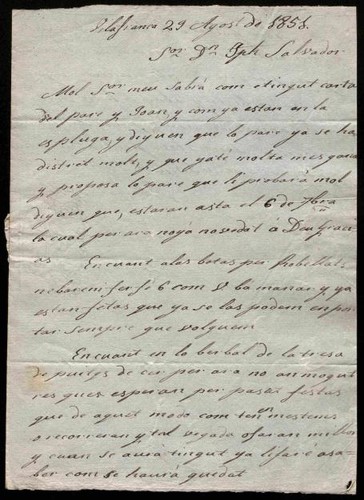 Vilafranca 29 Agost de 1858.
Sor. Dn. Jph Salvador
Mol Sor meu Sabrá com etingut carta
del pare y Joan, y com ya estan en la
espluga, y diguen que lo pare ya se ha
distret molt, y que yaté molta mes gana
y proposa lo pare que li probará mol
diguen que, estaran asta el 6 de 7bre
la cual per ara noya novedat a Deu gracias
En cuant a las botas per Robellat
ne barem fer fe 6 com V ba manar, y ya
estan fetas que ya se las poden enportar
sempre que volguen
En cuant en lo berbal de la tresa
de per ara no an mogut
res ques esperan per pasar festas
que de aquet modo com ten
o recorreran y tal vegada o faran millor
y cuan se aura tingut ya li faré asaber
com se haurá quedat